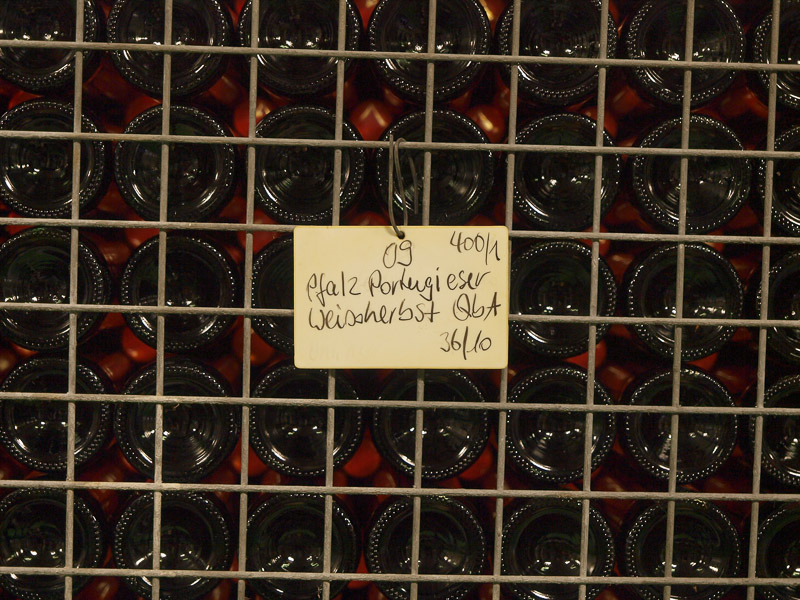 09 400/1
Pfalz Portugieser
Weissherbst QbA
36/10